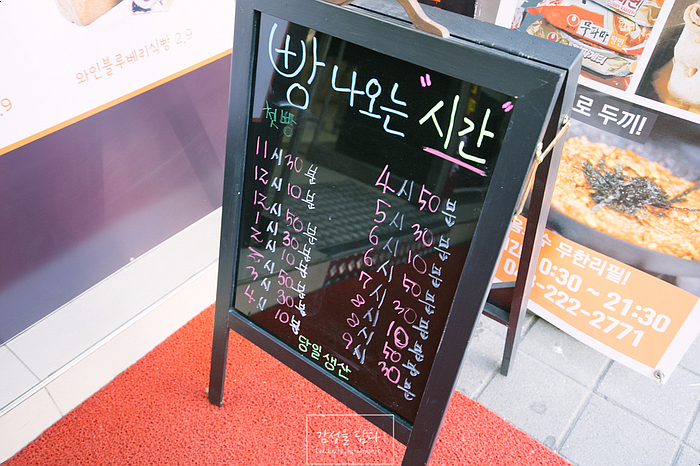 와인블루베리식빵 2.9
빵 나오는 "시간"
첫빵
11시 30분
12시 10분
12시 50분
1시 30분
2시 10분
2시 50분
3시 30분
4시 10분
4시 50분
5시 30분
6시 10분
6시 50분
7시 30분
8시 10분
8시 50분
9시 30분
당일생산
농심
무파마
로 두끼!
무한리필!
0:30 ~ 21:30
-222-2771
감성을 담다